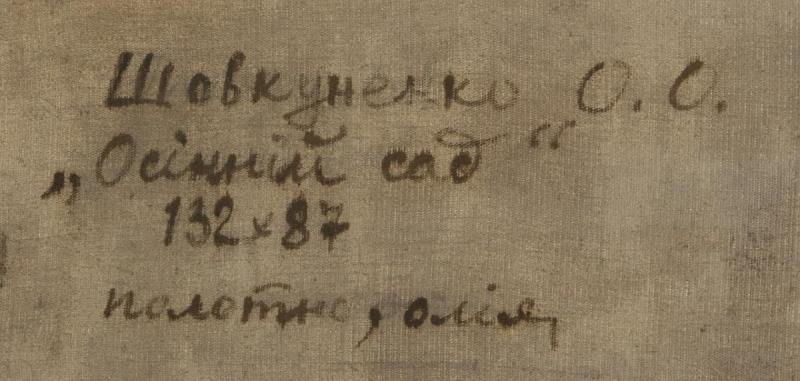 Шовкуненко О. О.
„Осінній сад“
132х87
полотно, олія